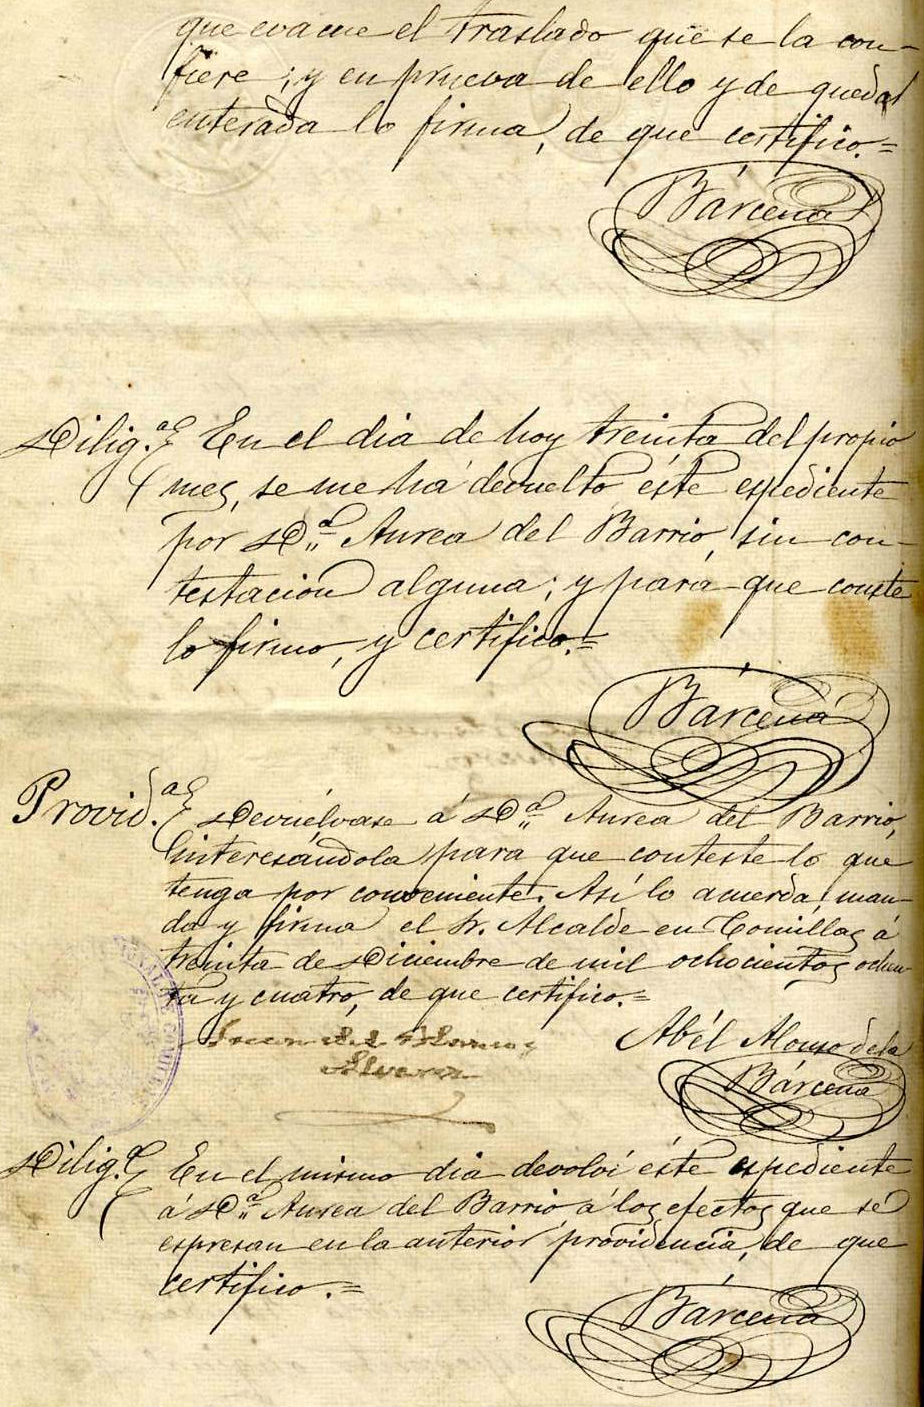 que evacue el traslado que se la con-
fiere; y en prueba de ello y de quedar
enterada lo firma, de que certifico.=
Bárcena
Dilig.ª En el dia de hoy treinta del propio
mes, se me há devuelto éste espediente
por D.ª Aurea del Barrio, sin con-
testacion alguna; y para que conste
lo firmo, y certifico.=
Bárcena
Provid.ª Devuélvase á D.ª Aurea del Barrio,
interesándola para que conteste lo que
tenga por conveniente. Así lo acuerda, man-
da y firma el Sr. Alcalde en Comillas á
treinta de Diciembre de mil ochocientos ochen-
ta y cuatro, de que certifico.=
Abél Alonso de la
Alvarez
Bárcena
Dilig.ª En el mismo dia devolví éste espediente
á D.ª Aurea del Barrio, á los efectos que se
espresan en la anterior providencia, de que
certifico.=
Bárcena